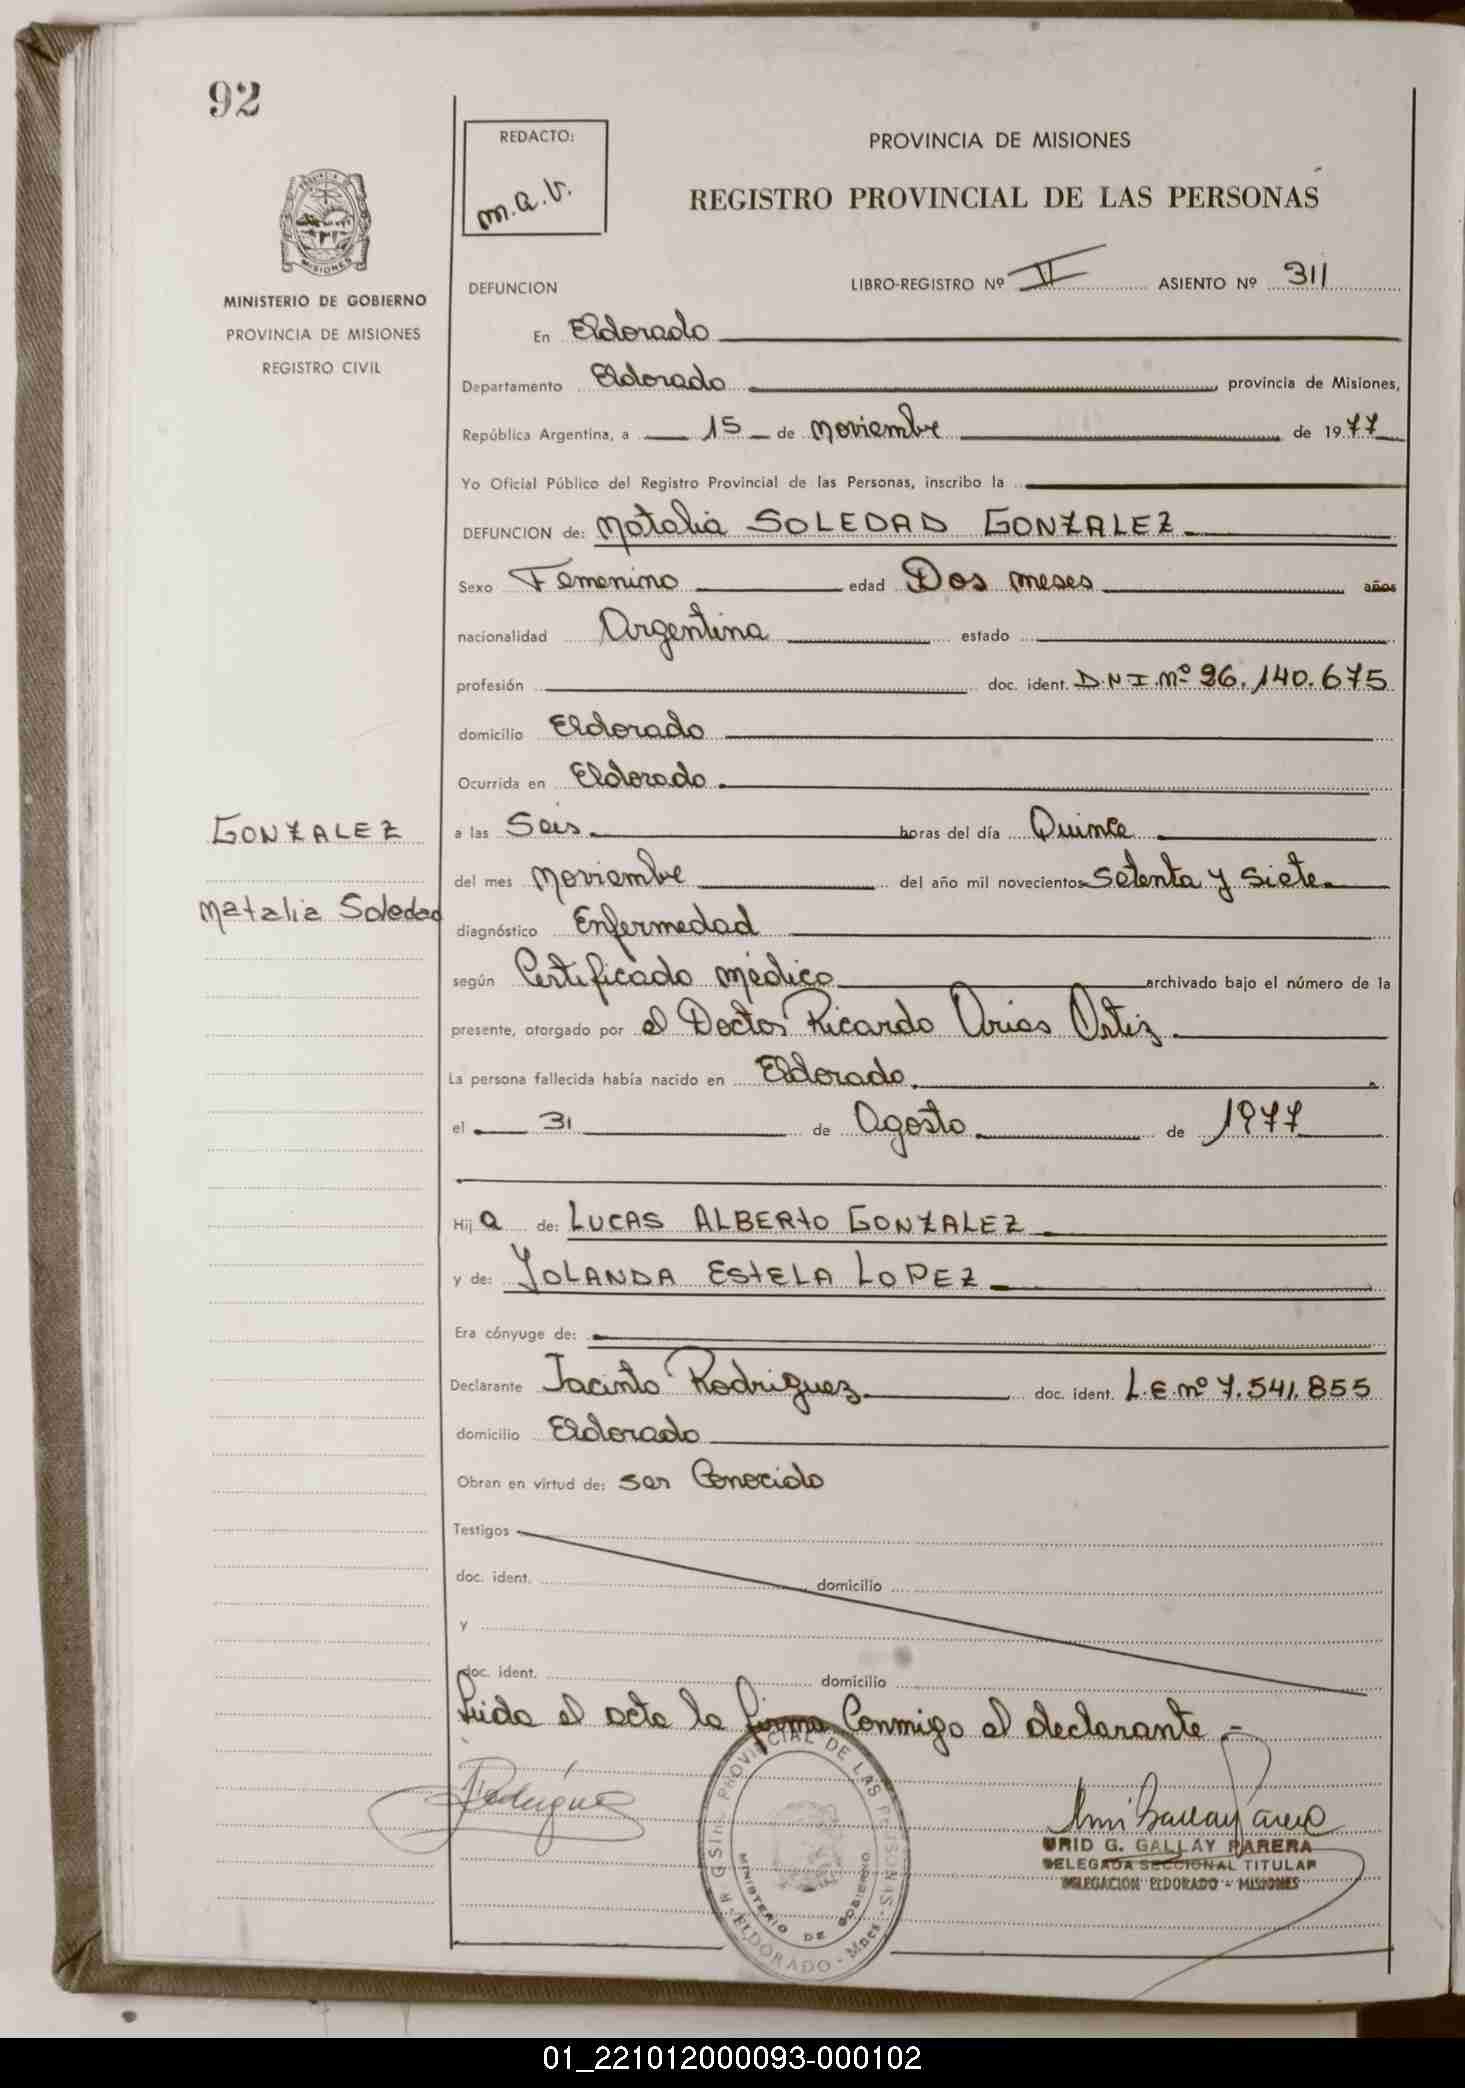 92
REDACTO:
m.a.v.
PROVINCIA DE MISIONES
REGISTRO PROVINCIAL DE LAS PERSONAS
MISIONES
MINISTERIO DE GOBIERNO
PROVINCIA DE MISIONES
REGISTRO CIVIL
DEFUNCION LIBRO-REGISTRO Nº V ASIENTO Nº 311
En Eldorado
Departamento Eldorado provincia de Misiones,
República Argentina, a 15 de Noviembre de 1977
Yo Oficial Público del Registro Provincial de las Personas, inscribo la
DEFUNCION de: Natalia SOLEDAD GONZALEZ
Sexo Femenino edad Dos meses años
nacionalidad Argentina estado
profesión doc. ident. D.N.I. Nº 26.140.675
domicilio Eldorado
Ocurrida en Eldorado
GONZALEZ
Natalia Soledad
a las Seis horas del día Quince
del mes Noviembre del año mil novecientos Setenta y Siete
diagnóstico Enfermedad
según Certificado médico archivado bajo el número de la
presente, otorgado por el Doctor Ricardo Arias Ortiz
La persona fallecida había nacido en Eldorado
el 31 de Agosto de 1977
Hij a de: LUCAS ALBERTO GONZALEZ
y de: YOLANDA ESTELA LOPEZ
Era cónyuge de:
Declarante Jacinto Rodriguez doc. ident. L.E. Nº 7.541.855
domicilio Eldorado
Obran en virtud de: ser Conocido
Testigos
doc. ident. domicilio
y
doc. ident. domicilio
Leida el acta la firma Conmigo el declarante.-
Rodriguez
PROVINCIAL DE LAS PERSONAS
MINISTERIO DE GOBIERNO
ELDORADO - Mnes
URID G. GALLAY PARERA
DELEGADA SECCIONAL TITULAR
DELEGACION ELDORADO - MISIONES
01_221012000093-000102